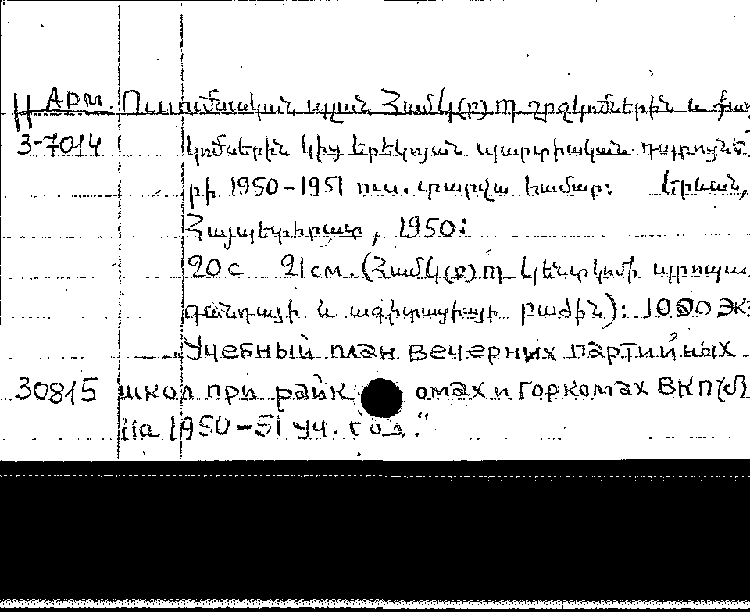 Арм. Ուսումնական պլան Համկ(բ)Պ շրջկոմներին և քաղ
II
3-7014 կոմներին կից երեկոյան պարտիական դպրոցնե
րի 1950-1951 ուս. տարվա համար: Երևան,
Հայպետհրատ, 1950:
20 с 21 см. (Համկ(բ)Պ Կենտկոմի պրոպա
գանդայի և ագիտացիայի բաժին): 1000 экз
Учебный план вечерних партийных
30815 школ при райк омах и горкомах ВКП(б)
на 1950-51 уч. год."